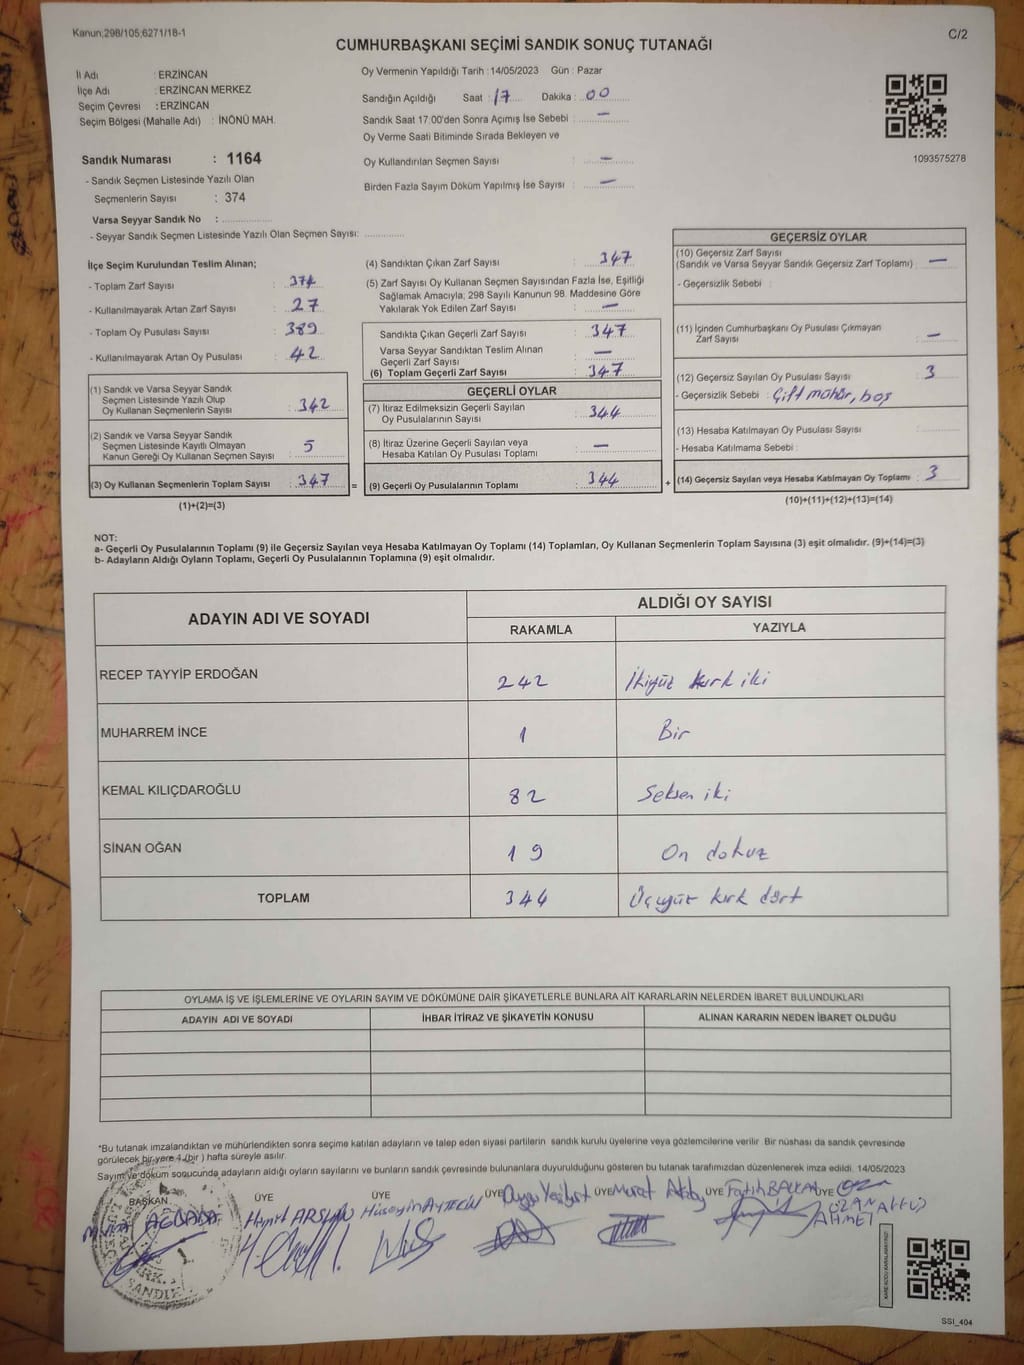 Kanun;298/105;6271/18-1
C/2
CUMHURBAŞKANI SEÇİMİ SANDIK SONUÇ TUTANAĞI
İl Adı : ERZİNCAN
İlçe Adı : ERZİNCAN MERKEZ
Seçim Çevresi : ERZİNCAN
Seçim Bölgesi (Mahalle Adı) : İNÖNÜ MAH.
Sandık Numarası : 1164
- Sandık Seçmen Listesinde Yazılı Olan
Seçmenlerin Sayısı : 374
Varsa Seyyar Sandık No :
- Seyyar Sandık Seçmen Listesinde Yazılı Olan Seçmen Sayısı:
Oy Vermenin Yapıldığı Tarih : 14/05/2023 Gün : Pazar
Sandığın Açıldığı Saat : 17 Dakika : 00
Sandık Saat 17:00'den Sonra Açımış İse Sebebi : —
Oy Verme Saati Bitiminde Sırada Bekleyen ve
Oy Kullandırılan Seçmen Sayısı : —
Birden Fazla Sayım Döküm Yapılmış İse Sayısı : —
1093575278
İlçe Seçim Kurulundan Teslim Alınan;
- Toplam Zarf Sayısı : 374
- Kullanılmayarak Artan Zarf Sayısı : 27
- Toplam Oy Pusulası Sayısı : 389
- Kullanılmayarak Artan Oy Pusulası : 42
(1) Sandık ve Varsa Seyyar Sandık
Seçmen Listesinde Yazılı Olup
Oy Kullanan Seçmenlerin Sayısı : 342
(2) Sandık ve Varsa Seyyar Sandık
Seçmen Listesinde Kayıtlı Olmayan
Kanun Gereği Oy Kullanan Seçmen Sayısı : 5
(3) Oy Kullanan Seçmenlerin Toplam Sayısı : 347
(1)+(2)=(3)
(4) Sandıktan Çıkan Zarf Sayısı : 347
(5) Zarf Sayısı Oy Kullanan Seçmen Sayısından Fazla İse, Eşitliği
Sağlamak Amacıyla; 298 Sayılı Kanunun 98. Maddesine Göre
Yakılarak Yok Edilen Zarf Sayısı : —
Sandıkta Çıkan Geçerli Zarf Sayısı : 347
Varsa Seyyar Sandıktan Teslim Alınan
Geçerli Zarf Sayısı : —
(6) Toplam Geçerli Zarf Sayısı : 347
GEÇERLİ OYLAR
(7) İtiraz Edilmeksizin Geçerli Sayılan
Oy Pusulasının Sayısı : 344
(8) İtiraz Üzerine Geçerli Sayılan veya
Hesaba Katılan Oy Pusulası Toplamı : —
= (9) Geçerli Oy Pusulalarının Toplamı : 344
GEÇERSİZ OYLAR
(10) Geçersiz Zarf Sayısı
(Sandık ve Varsa Seyyar Sandık Geçersiz Zarf Toplamı) : —
- Geçersizlik Sebebi :
(11) İçinden Cumhurbaşkanı Oy Pusulası Çıkmayan
Zarf Sayısı : —
(12) Geçersiz Sayılan Oy Pusulası Sayısı : 3
- Geçersizlik Sebebi : Çift mühür, boş
(13) Hesaba Katılmayan Oy Pusulası Sayısı :
- Hesaba Katılmama Sebebi :
+ (14) Geçersiz Sayılan veya Hesaba Katılmayan Oy Toplamı : 3
(10)+(11)+(12)+(13)=(14)
NOT:
a- Geçerli Oy Pusulalarının Toplamı (9) ile Geçersiz Sayılan veya Hesaba Katılmayan Oy Toplamı (14) Toplamları, Oy Kullanan Seçmenlerin Toplam Sayısına (3) eşit olmalıdır. (9)+(14)=(3)
b- Adayların Aldığı Oyların Toplamı, Geçerli Oy Pusulalarının Toplamına (9) eşit olmalıdır.
ADAYIN ADI VE SOYADI
ALDIĞI OY SAYISI
RAKAMLA YAZIYLA
RECEP TAYYİP ERDOĞAN 242 İkiyüz kırk iki
MUHARREM İNCE 1 Bir
KEMAL KILIÇDAROĞLU 82 Seksen iki
SİNAN OĞAN 19 On dokuz
TOPLAM 344 Üçyüz kırk dört
OYLAMA İŞ VE İŞLEMLERİNE VE OYLARIN SAYIM VE DÖKÜMÜNE DAİR ŞİKAYETLERLE BUNLARA AİT KARARLARIN NELERDEN İBARET BULUNDUKLARI
ADAYIN ADI VE SOYADI İHBAR İTİRAZ VE ŞİKAYETİN KONUSU ALINAN KARARIN NEDEN İBARET OLDUĞU
*Bu tutanak imzalandıktan ve mühürlendikten sonra seçime katılan adayların ve talep eden siyasi partilerin sandık kurulu üyelerine veya gözlemcilerine verilir. Bir nüshası da sandık çevresinde
görülecek bir yere 1 (bir ) hafta süreyle asılır.
Sayım ve döküm sonucunda adayların aldığı oyların sayılarını ve bunların sandık çevresinde bulunanlara duyurulduğunu gösteren bu tutanak tarafımızdan düzenlenerek imza edildi. 14/05/2023
BAŞKAN ÜYE ÜYE ÜYE ÜYE ÜYE ÜYE
ARSLAN Hüseyin AYTEKİN Duygu Yeşilyurt Murat Fatih BALKAN
AHMET OZAN
SANDIK
SSI_404